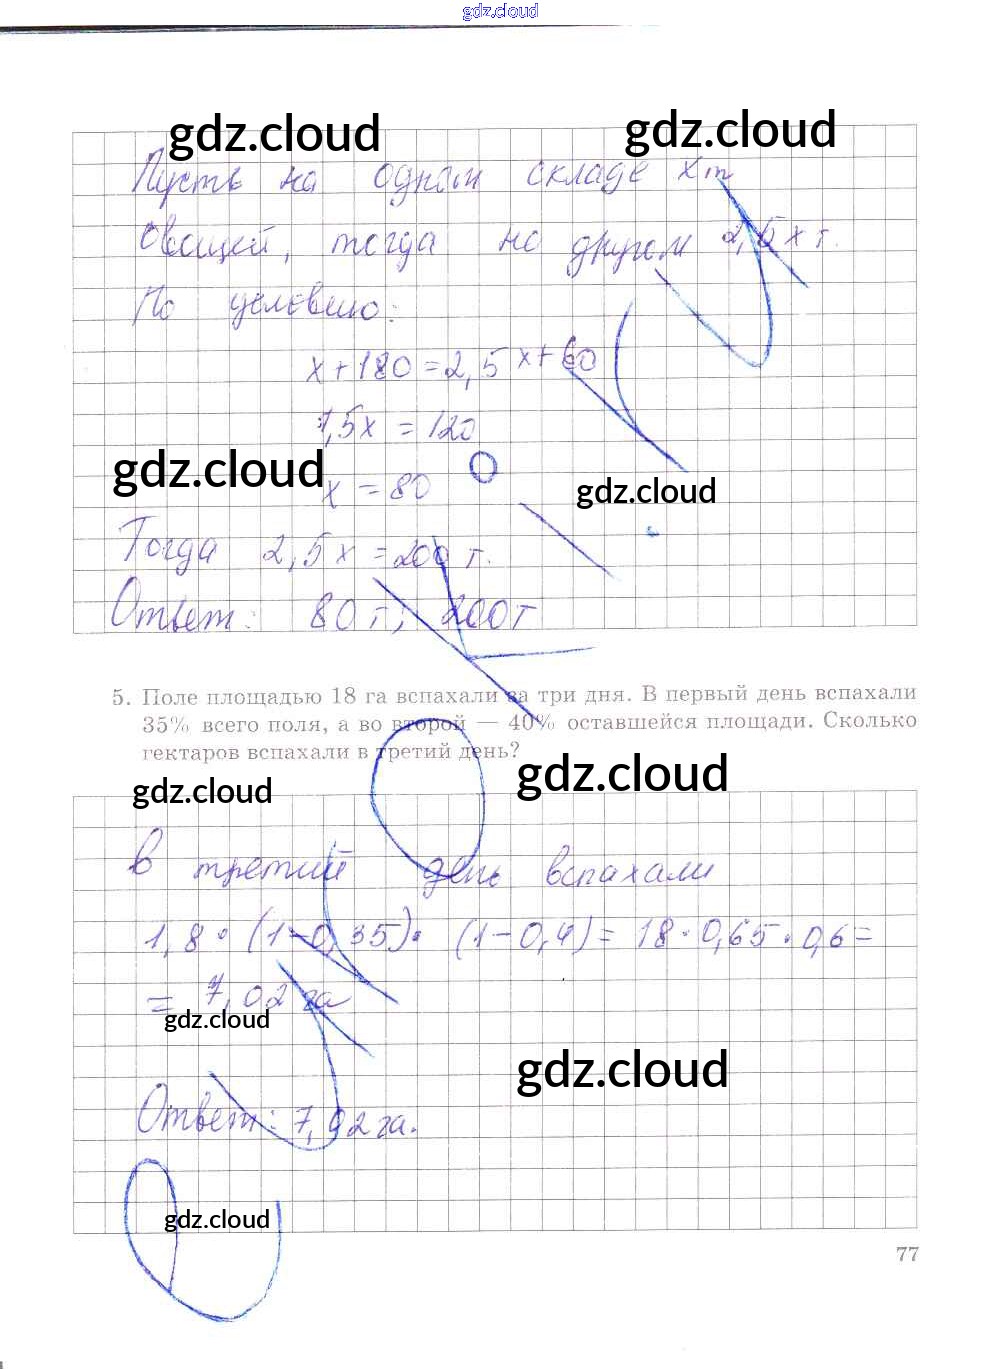 gdz.cloud
gdz.cloud gdz.cloud
Пусть на одном складе x т
овощей, тогда на другом 2,5x т.
По условию:
x+180=2,5x+60
1,5x=120
gdz.cloud
x=80
gdz.cloud
Тогда 2,5x=200 т.
Ответ: 80т; 200т
5. Поле площадью 18 га вспахали за три дня. В первый день вспахали
35% всего поля, а во второй — 40% оставшейся площади. Сколько
гектаров вспахали в третий день?
gdz.cloud
gdz.cloud
В третий день вспахали
1,8·(1-0,35)·(1-0,4)=18·0,65·0,6=
=7,02 га
gdz.cloud
gdz.cloud
Ответ: 7,02 га.
gdz.cloud
77